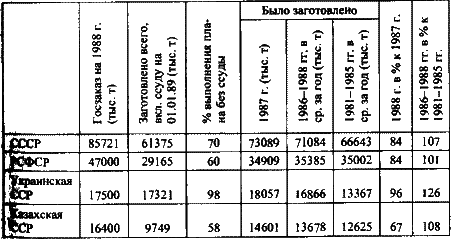 Госзаказ на 1988 г. (тыс. т)
Заготовлено всего, вкл. ссуду на 01.01.89 (тыс. т)
% выполнения плана без ссуды
Было заготовлено
1987 г. (тыс. т)
1986–1988 гг. в ср. за год (тыс. т)
1981–1985 гг. в ср. за год (тыс. т)
1988 г. в % к 1987 г.
1986–1988 гг. в % к 1981–1985 гг.
СССР 85721 61375 70 73089 71084 66643 84 107
РСФСР 47000 29165 60 34909 35385 35002 84 101
Украинская
ССР 17500 17321 98 18057 16866 13367 96 126
Казахская
ССР 16400 9749 58 14601 13678 12625 67 108